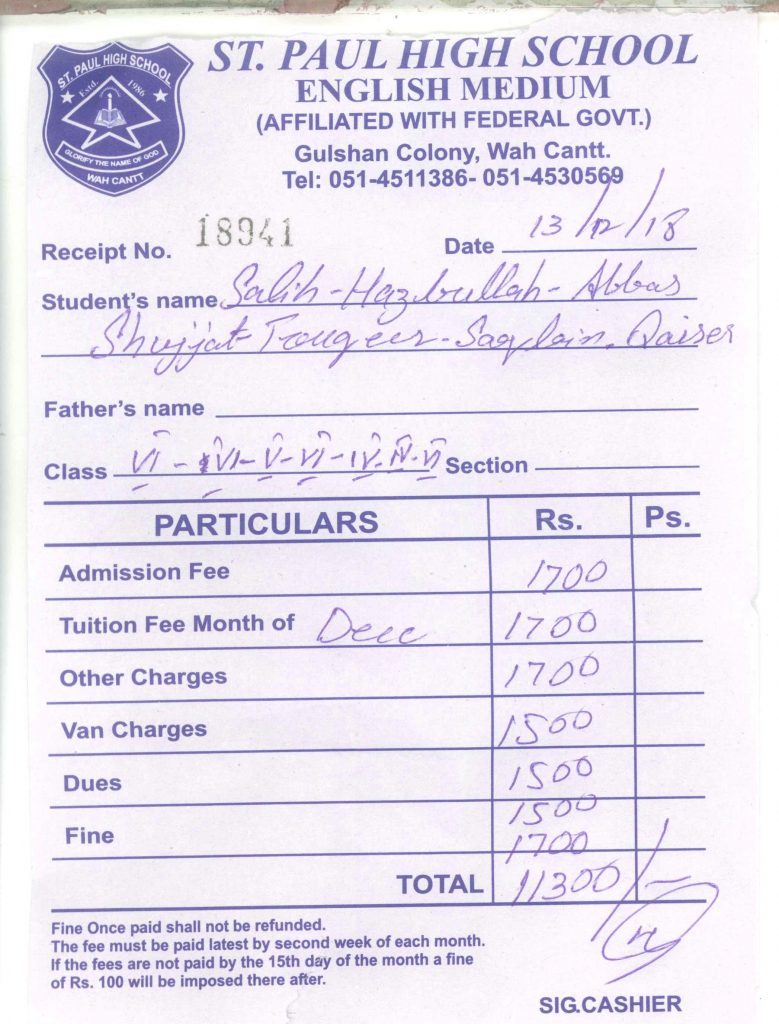 ST. PAUL HIGH SCHOOL
Estd. 1986
GLORIFY THE NAME OF GOD
WAH CANTT
ST. PAUL HIGH SCHOOL
ENGLISH MEDIUM
(AFFILIATED WITH FEDERAL GOVT.)
Gulshan Colony, Wah Cantt.
Tel: 051-4511386- 051-4530569
Receipt No. 18941 Date 13/12/18
Student's name Salih-Hazbullah-Abbas
Shujjat Touqeer-Saqlain-Qaiser
Father's name
Class VI - VI - V - VI - IV - IV - VI Section
PARTICULARS Rs. Ps.
Admission Fee 1700
Tuition Fee Month of Dec 1700
Other Charges 1700
Van Charges 1500
Dues 1500
1500
Fine 1700
TOTAL 11300/-
Fine Once paid shall not be refunded.
The fee must be paid latest by second week of each month.
If the fees are not paid by the 15th day of the month a fine
of Rs. 100 will be imposed there after.
SIG.CASHIER